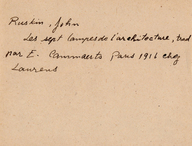 Ruskin, John
Les sept lampes de l'architecture, trad
par E. Cammaerts Paris 1916 chez
Laurens